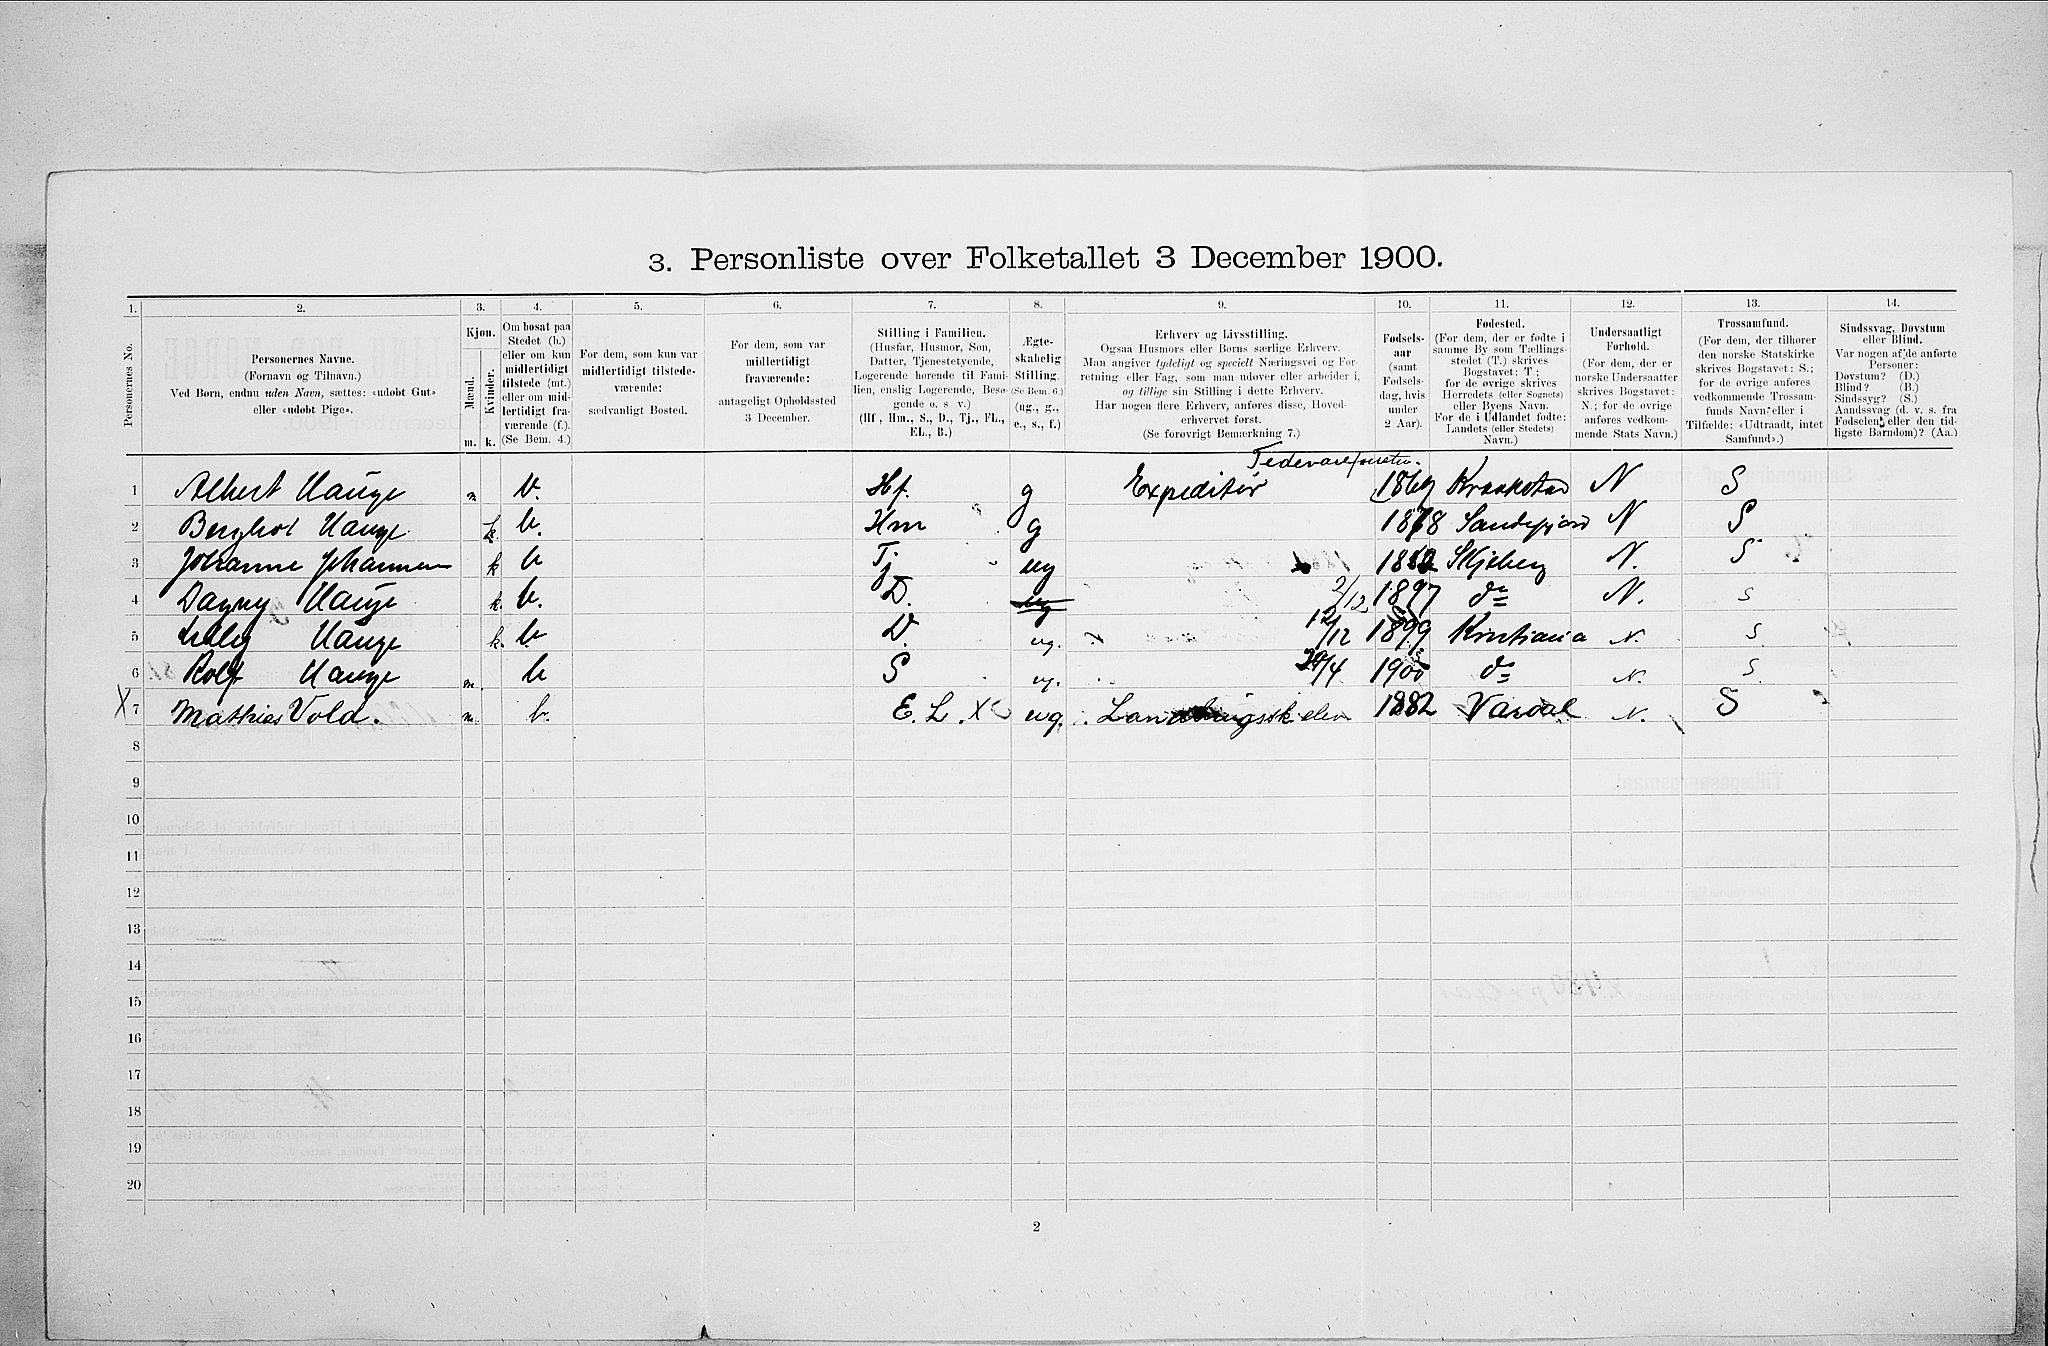 3. Personliste over Folketallet 3 December 1900.
1. 2. 3. 4. 5. 6. 7. 8. 9. 10. 11. 12. 13. 14.
Personernes No.
Personernes Navne.
(Fornavn og Tilnavn.)
Ved Børn, endnu uden Navn, sættes: «udøbt Gut»
eller «udøbt Pige».
Kjøn.
Mænd.
Kvinder.
m. k.
Om bosat paa
Stedet (b.)
eller om kun
midlertidigt
tilstede (mt.)
eller om mid-
lertidigt fra-
værende (f.).
(Se Bem. 4.)
For dem, som kun var
midlertidigt tilstede-
værende:
sædvanligt Bosted.
For dem, som var
midlertidigt
fraværende:
antageligt Opholdssted
3 December.
Stilling i Familien.
(Husfar, Husmor, Søn,
Datter, Tjenestetyende,
Logerende hørende til Fami-
lien, enslig Logerende, Besø-
gende o. s. v.)
(Hf, Hm., S., D., Tj., FL.,
EL., B.)
Ægte-
skabelig
Stilling.
(Se Bem. 6.)
(ug., g.,
e., s., f.)
Erhverv og Livsstilling.
Ogsaa Husmors eller Børns særlige Erhverv.
Man angiver tydeligt og specielt Næringsvei og For-
retning eller Fag, som man udøver eller arbeider i,
og tillige sin Stilling i dette Erhverv.
Har nogen flere Erhverv, anføres disse, Hoved-
erhvervet først.
(Se forøvrigt Bemærkning 7.)
Fødsels-
aar
(samt
Fødsels-
dag, hvis
under
2 Aar).
Fødested.
(For dem, der er fødte i
samme By som Tællings-
stedet (T.) skrives
Bogstavet: T;
for de øvrige skrives
Herredets (eller Sognets)
eller Byens Navn.
For de i Udlandet fødte:
Landets (eller Stedets)
Navn.)
Undersaatligt
Forhold.
(For dem, der er
norske Undersaatter
skrives Bogstavet:
N.; for de øvrige
anføres vedkom-
mende Stats Navn.)
Trossamfund.
(For dem, der tilhører
den norske Statskirke
skrives Bogstavet: S.;
for de øvrige anføres
vedkommende Trossam-
funds Navn eller i
Tilfælde: «Udtraadt, intet
Samfund».)
Sindssvag, Døvstum
eller Blind.
Var nogen af de anførte
Personer:
Døvstum? (D.)
Blind? (B.)
Sindssyg? (S.)
Aandssvag (d. v. s. fra
Fødselen eller den tid-
ligste Barndom)? (Aa.)
1 Albert Hauge m b. Hf. g Expeditør 1869 Kraakstad N S
2 Bergliot Hauge k b. Hm g 1878 Sandefjord N S
3 Johanne Johannesen k b Tj ug Skjeberg N. S
4 Dagny Hauge k. b. D. ug 2/12 1897 do N. S
5 Lilly Hauge k. b. D. ug. 12/12 1899 Kristiania N. S
6 Rolf Hauge m. b S ug. 29/4 1900 do N. S
X 7 Mathies Vold. m. b. E. L. X ug. Landbrugssk elev 1882 Vardal N. S
8
9
10
11
12
13
14
15
16
17
18
19
20
2